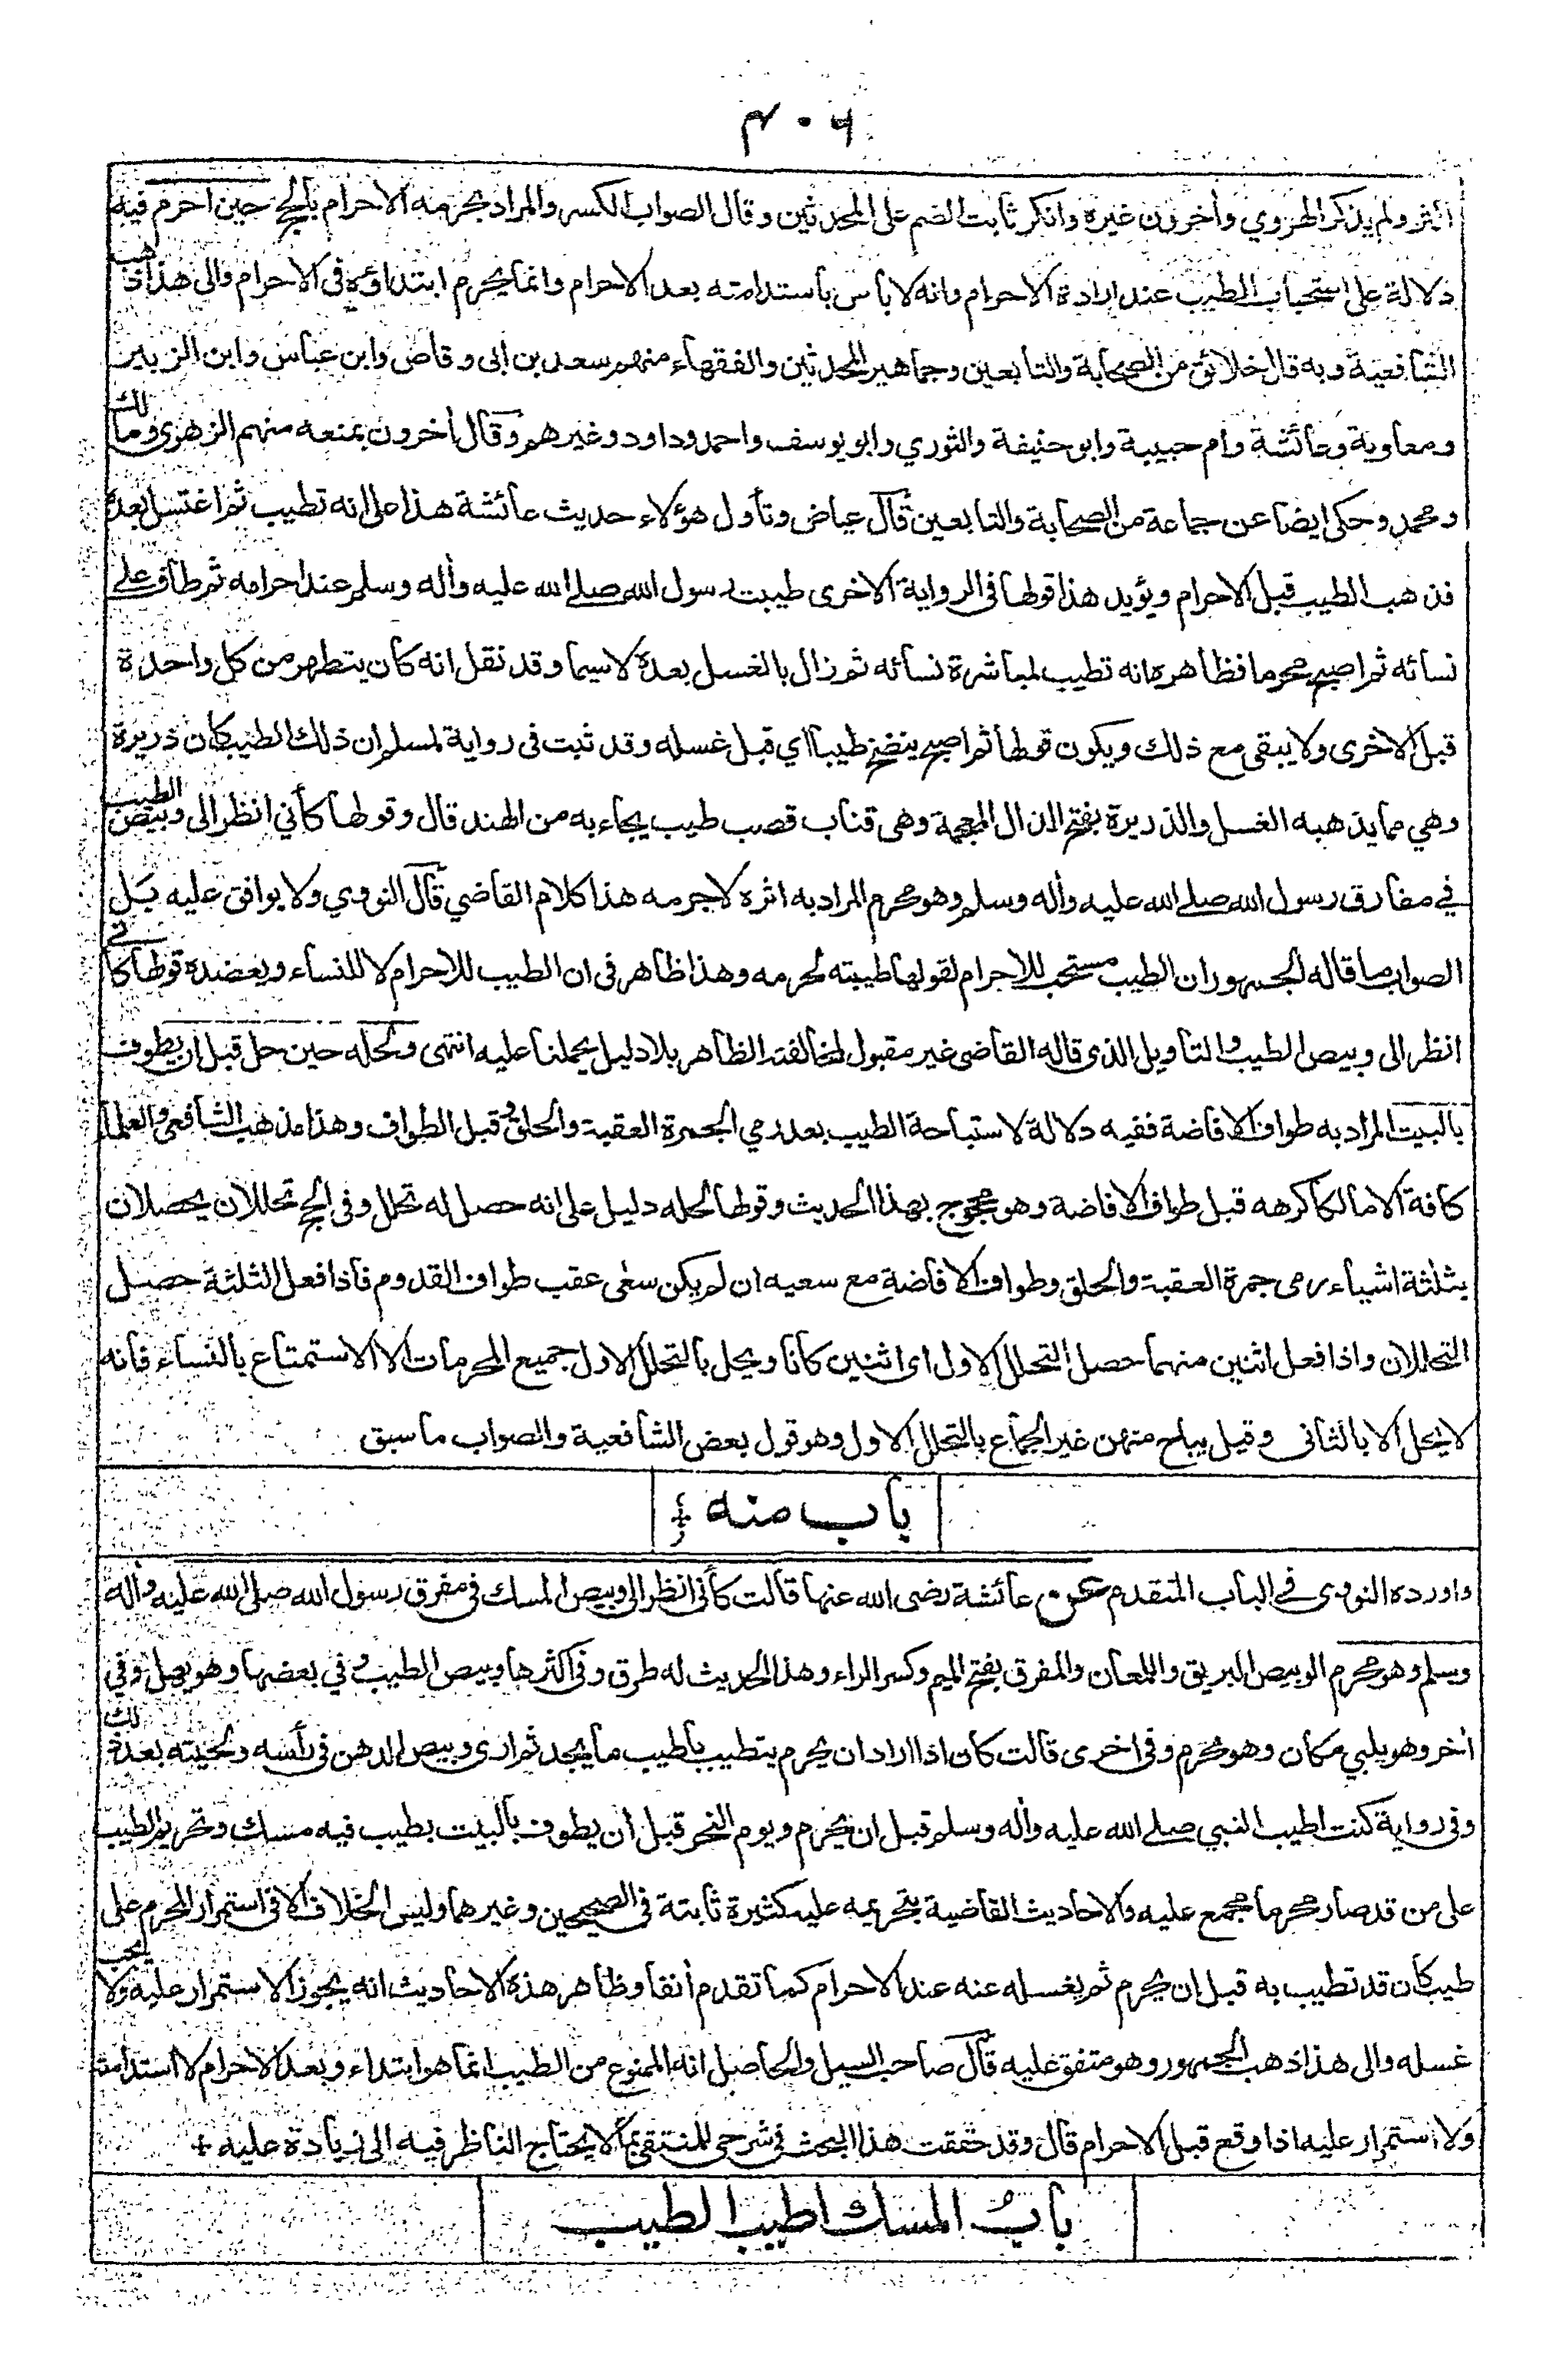 ٤٠٦
اكثر ولم يذكر الهروي وأخرون غيره وانكر ثابت الضم على المحدثين وقال الصواب الكسر والمراد بحرمه الاحرام بالحج حين احرم فيه
دلالة على استحباب الطيب عند ارادة الاحرام وانه لا بأس بأستدامته بعد الاحرام وانما يحرم ابتداؤه فى الاحرام والى هذا ذهب
الشافعية وبه قال خلائق من الصحابة والتابعين وجماهير المحدثين والفقهاء منهم سعد بن ابى وقاص وابن عباس وابن الزبير
ومعاوية وعائشة وام حبيبة وابو حنيفة والثوري وابو يوسف واحمد وداود وغيرهم وقال أخرون بمنعه منهم الزهرى ومالك
ومحمد وحكى ايضا عن جماعة من الصحابة والتابعين قال عياض وتأول هؤلاء حديث عائشة هذا على انه تطيب ثم اغتسل بعده
فذهب الطيب قبل الاحرام ويؤيد هذا قولها فى الرواية الاخرى طيبت رسول الله صلے الله عليه وأله وسلم عند احرامه ثم طاف علے
نسائه ثم اصبح محرما فظاهره انه تطيب لمباشرة نسائه ثم زال بالغسل بعده لاسيما وقد نقل انه كان يتطهر من كل واحدة
قبل الاخرى ولا يبقى مع ذلك ويكون قولها ثم اصبح ينضخ طيبا اي قبل غسله وقد ثبت فى رواية لمسلم ان ذلك الطيب كان ذريرة
وهي مما يذهبه الغسل والذريرة بفتح الذال المعجمة وهى قناب قصب طيب يجاء به من الهند قال وقولها كأني انظر الى وبيص الطيب
في مفارق رسول الله صلے الله عليه وأله وسلم وهو محرم المراد به اثره لا جرمه هذا كلام القاضي قال النووي ولا يوافق عليه بل
الصواب ما قاله الجمهور ان الطيب مستحب للاحرام لقولها طيبته لحرمه وهذا ظاهر فى ان الطيب للاحرام لا للنساء ويعضده قولها كأني
انظر الى وبيص الطيب والتأويل الذى قاله القاضى غير مقبول لمخالفته الظاهر بلا دليل يحملنا عليه انتهى ولحله حين حل قبل ان يطوف
بالبيت المراد به طواف الافاضة ففيه دلالة لاستباحة الطيب بعد رمي الجمرة العقبة والحلق وقبل الطواف وهذا مذهب الشافعى والعلماء
كافة الا مالكا كرهه قبل طواف الافاضة وهو محجوج بهذا الحديث وقولها لحله دليل على انه حصل له تحلل وفى الحج تحللان يحصلان
بثلثة اشياء رمى جمرة العقبة والحلق وطواف الافاضة مع سعيه ان لم يكن سعى عقب طواف القدوم فأذا فعل الثلثة حصل
التحللان واذا فعل اثنين منهما حصل التحلل الاول اى اثنين كانا ويحل بالتحلل الاول جميع المحرمات الا الاستمتاع بالنساء فانه
لا يحل الا بالثانى وقيل يباح منهن غير الجماع بالتحلل الاول وهو قول بعض الشافعية والصواب ما سبق
باب منه
واورده النووى فے الباب المتقدم عن عائشة رضى الله عنها قالت كأنى انظر الى وبيص المسك فى مفرق رسول الله صلى الله عليه وأله
وسلم وهو محرم الوبيص البريق واللمعان والمفرق بفتح الميم وكسر الراء وهذا الحديث له طرق وفى اكثرها وبيص الطيب وفي بعضها وهو يهل وفي
أخر وهو يلبي مكان وهو محرم وفى اخرى قالت كان اذا اراد ان يحرم يتطيب بأطيب ما يجد ثم ارى وبيص الدهن فى رأسه ولحيته بعد ذلك
وفى رواية كنت اطيب النبي صلے الله عليه وأله وسلم قبل ان يحرم ويوم النحر قبل أن يطوف بالبيت بطيب فيه مسك وتحريم الطيب
على من قد صار محرما مجمع عليه والاحاديث القاضية بتحريمه عليه كثيرة ثابتة فى الصحيحين وغيرهما وليس الخلاف الا فى استمرار المحرم على
طيب كان قد تطيب به قبل ان يحرم ثم يغسله عنه عند الاحرام كما تقدم أنفا وظاهر هذه الاحاديث انه يجوز الاستمرار عليه ولا يجب
غسله والى هذا ذهب الجمهور وهو متفق عليه قال صاحب السيل والحاصل انه الممنوع من الطيب انما هو ابتداء وبعد الاحرام لا استدامته
ولا استمرار عليه اذا وقع قبل الاحرام قال وقد حققت هذا البحث فى شرحى للمنتقى بما لا يحتاج الناظر فيه الى زيادة عليه
باب المسك اطيب الطيب